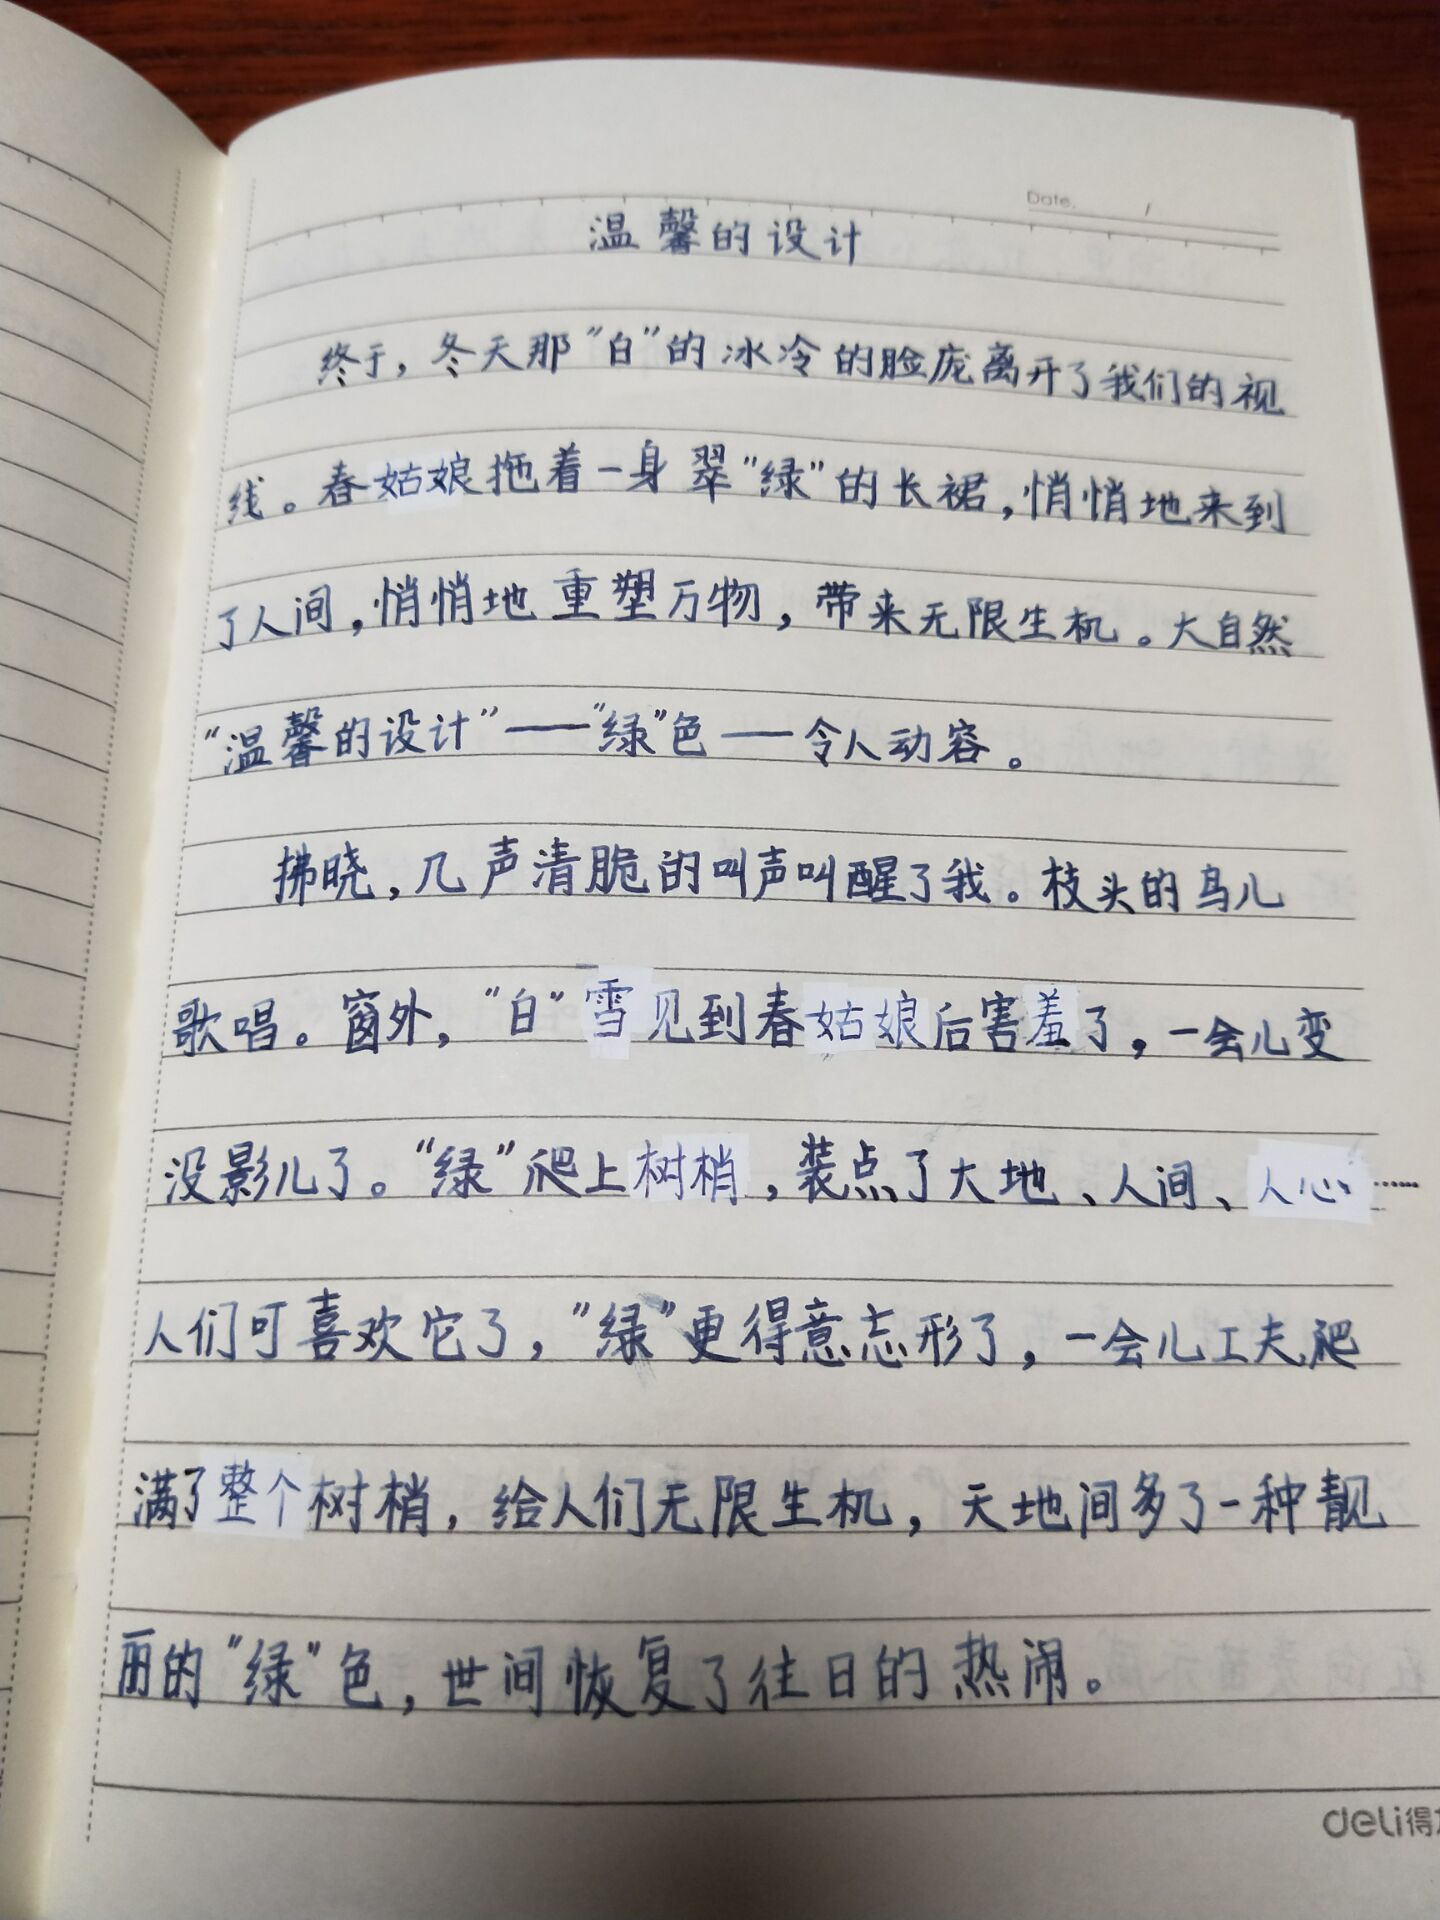 Date.
温馨的设计
终于，冬天那“白”的冰冷的脸庞离开了我们的视
线。春姑娘拖着一身翠“绿”的长裙，悄悄地来到
了人间，悄悄地重塑万物，带来无限生机。大自然
“温馨的设计”——“绿”色——令人动容。
拂晓，几声清脆的叫声叫醒了我。枝头的鸟儿
歌唱。窗外，“白”雪见到春姑娘后害羞了，一会儿变
没影儿了。“绿”爬上树梢，装点了大地、人间、人心……
人们可喜欢它了，“绿”更得意忘形了，一会儿工夫，爬
满了整个树梢，给人们无限生机，天地间多了一种靓
丽的“绿”色，世间恢复了往日的热闹。
deli得力